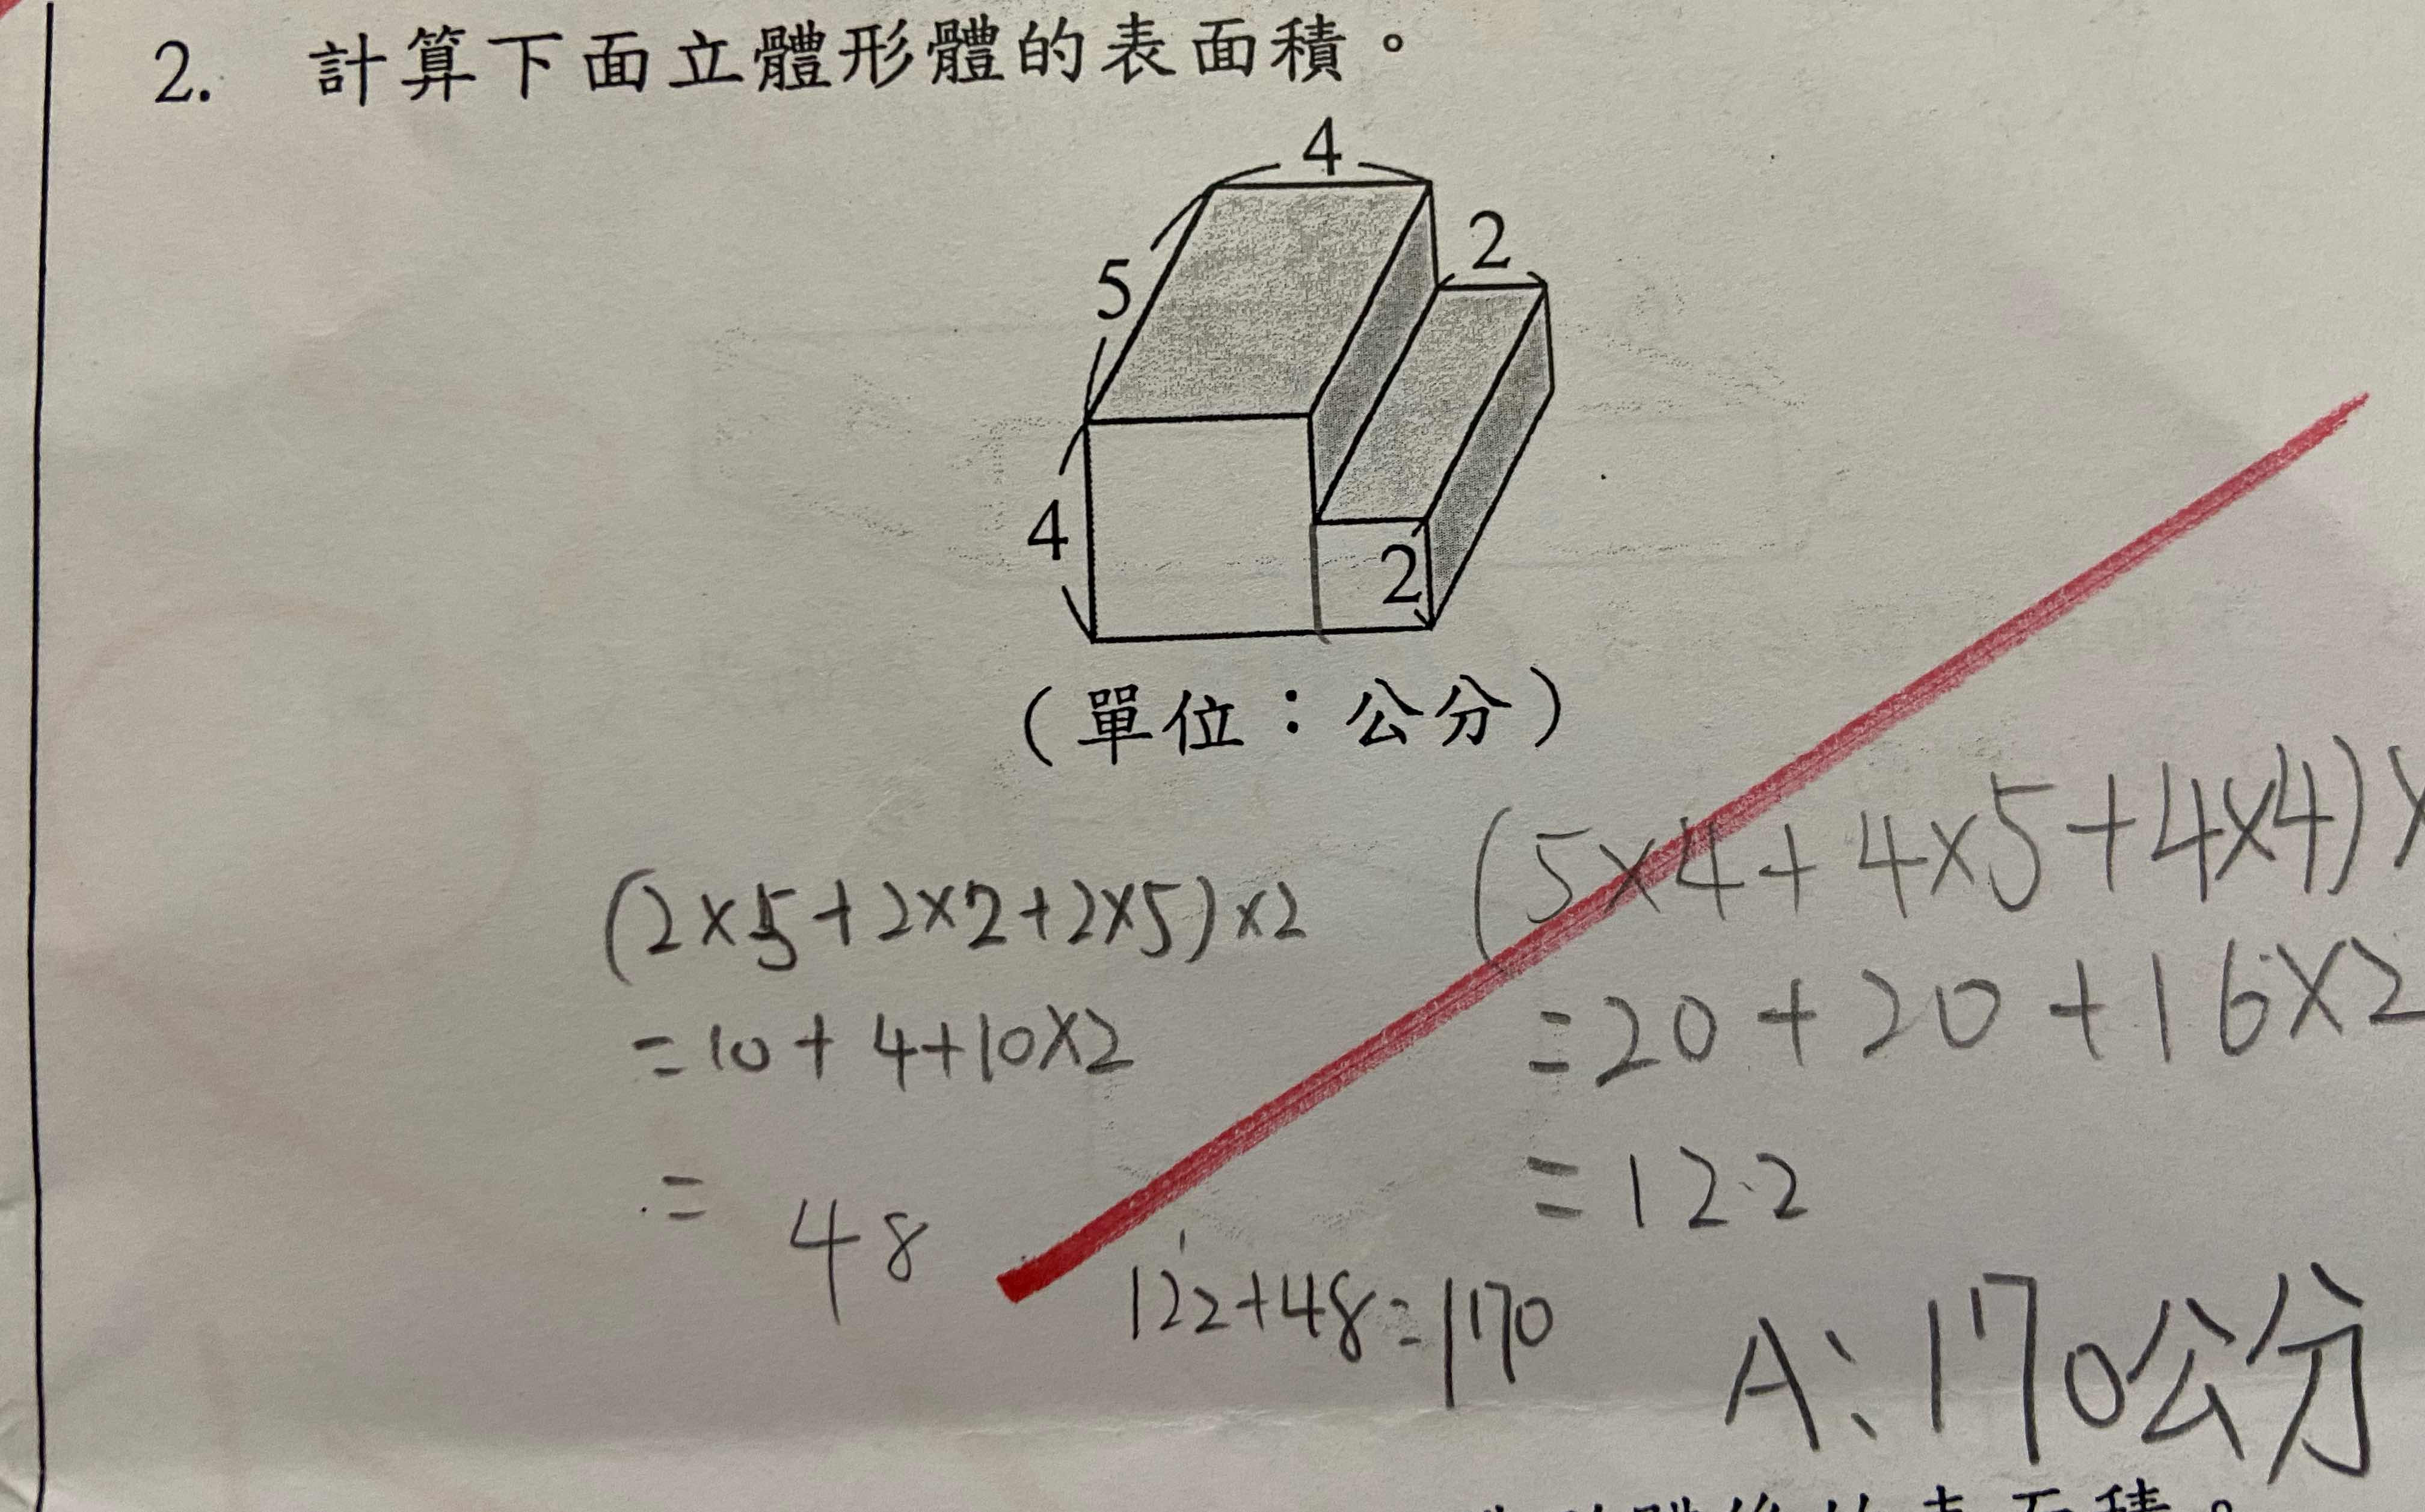 2. 計算下面立體形體的表面積。
4
2
5
4
2
(單位：公分)
(2×5+2×2+2×5)×2
=10+4+10×2
=48
(5×4+4×5+4×4)×
=20+20+16×2
=122
122+48=170
A:170公分